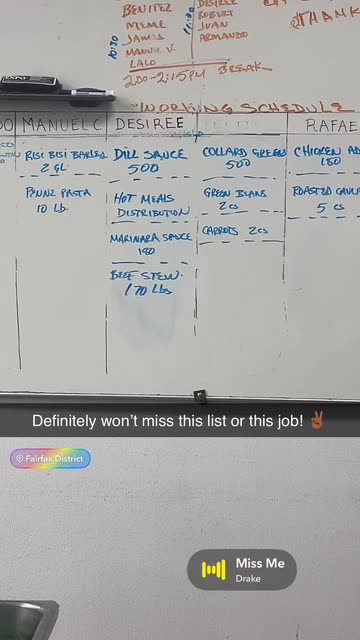 BENITEZ
MEME
JAMES
MANUEL V.
LALO
10:30
DESIREE
ROBERT
JUAN
ARMANDO
11:30
@THANK
2:00-2:15PM BREAK
EXPO
WORKING SCHEDULE
DO
MANUEL C
DESIREE
RAFAE
RISI BISI BARLEY
2 GL
PENNE PASTA
10 Lb.
DILL SAUCE
500
HOT MEALS
DISTRIBUTION
MARINARA SAUCE
180
BEEF STEW.
170 Lbs
COLLARD GREENS
500
GREEN BEANS
2 CS
CARROTS 2CS
CHICKEN AD
180
ROASTED CAUL
5 CS
Definitely won't miss this list or this job! ✌🏾
Fairfax District
Miss Me
Drake